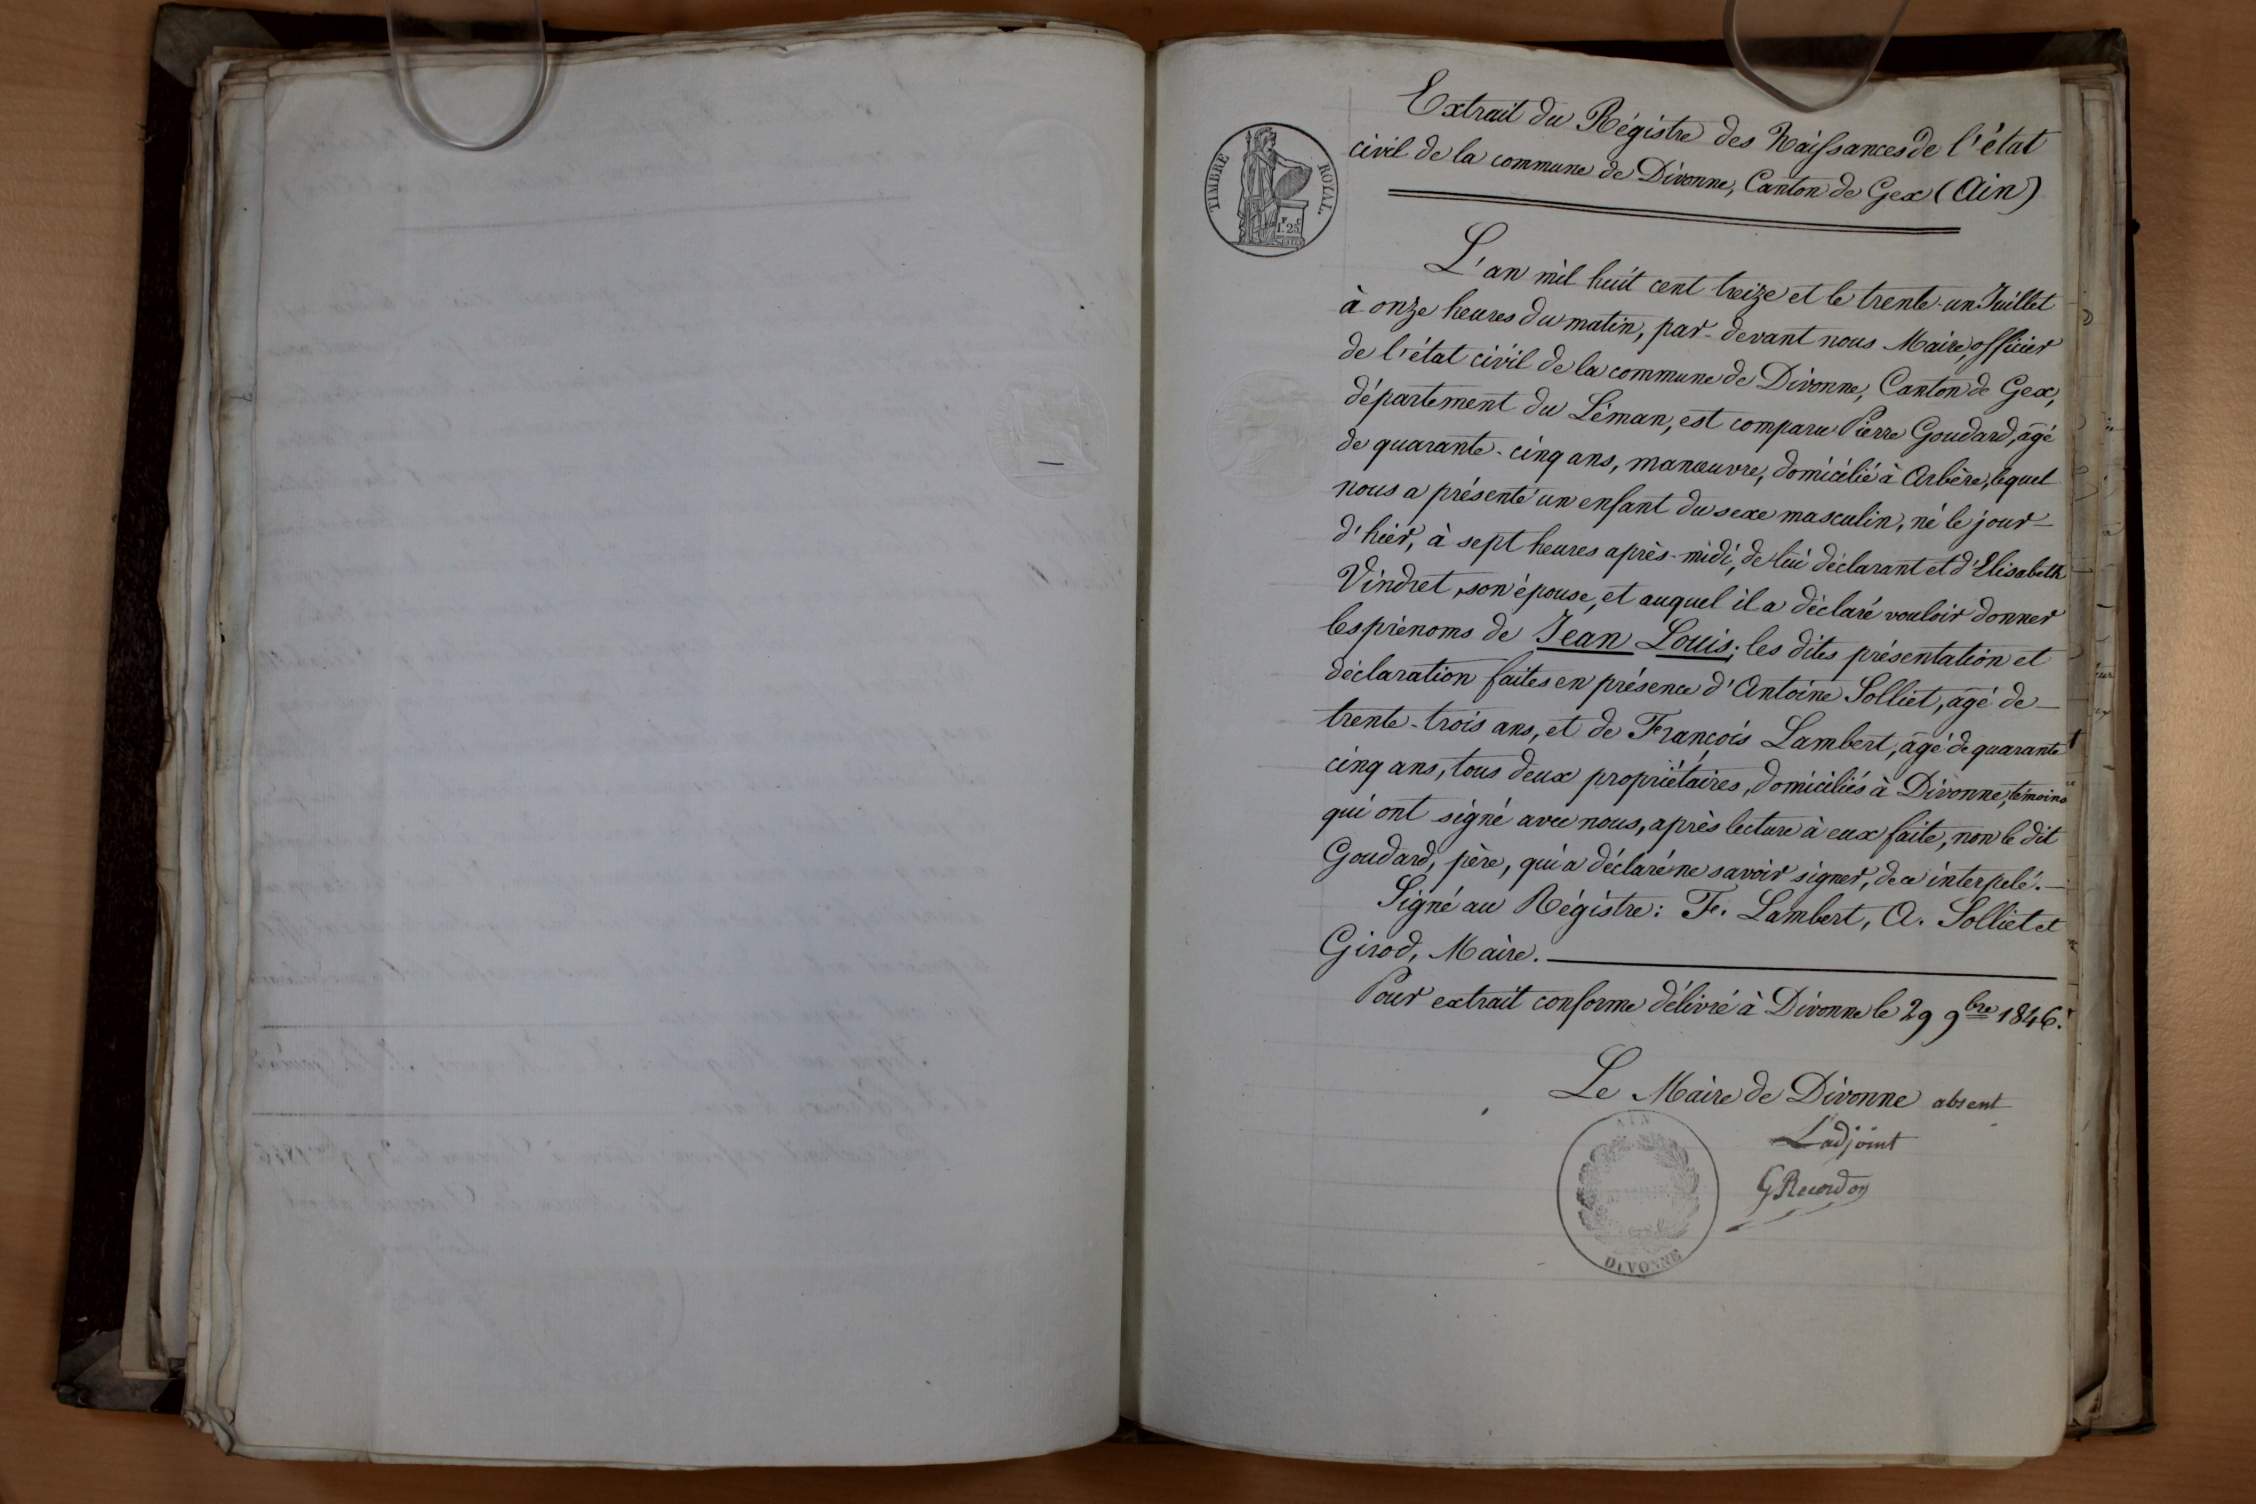 Extrait du Régistre des Naissances de l'état
civil de la commune de Divonne, Canton de Gex (Ain)
TIMBRE ROYAL.
1F. 25C
L'an mil huit cent treize et le trente-un Juillet
à onze heures du matin, par-devant nous Maire, officier
de l'état civil de la commune de Divonne, Canton de Gex,
département du Léman, est comparu Pierre Goudard, âgé
de quarante-cinq ans, manœuvre, domicilié à Arbère, lequel
nous a présenté un enfant du sexe masculin, né le jour
d'hier, à sept heures après-midi, de lui déclarant et d'Elisabeth
Vindret, son épouse, et auquel il a déclaré vouloir donner
les prénoms de Jean Louis; les dites présentation et
déclaration faites en présence d'Antoine Solliet, âgé de
trente-trois ans, et de François Lambert, âgé de quarante
cinq ans, tous deux propriétaires, domiciliés à Divonne, témoins
qui ont signé avec nous, après lecture à eux faite, non le dit
Goudard, père, qui a déclaré ne savoir signer, de ce interpelé.
Signé au Régistre: Fs. Lambert, A. Solliet et
Girod, Maire.
Pour extrait conforme délivré à Divonne le 29 9bre 1846.
Le Maire de Divonne absent
L'adjoint
G Recordon
AIN
DIVONNE